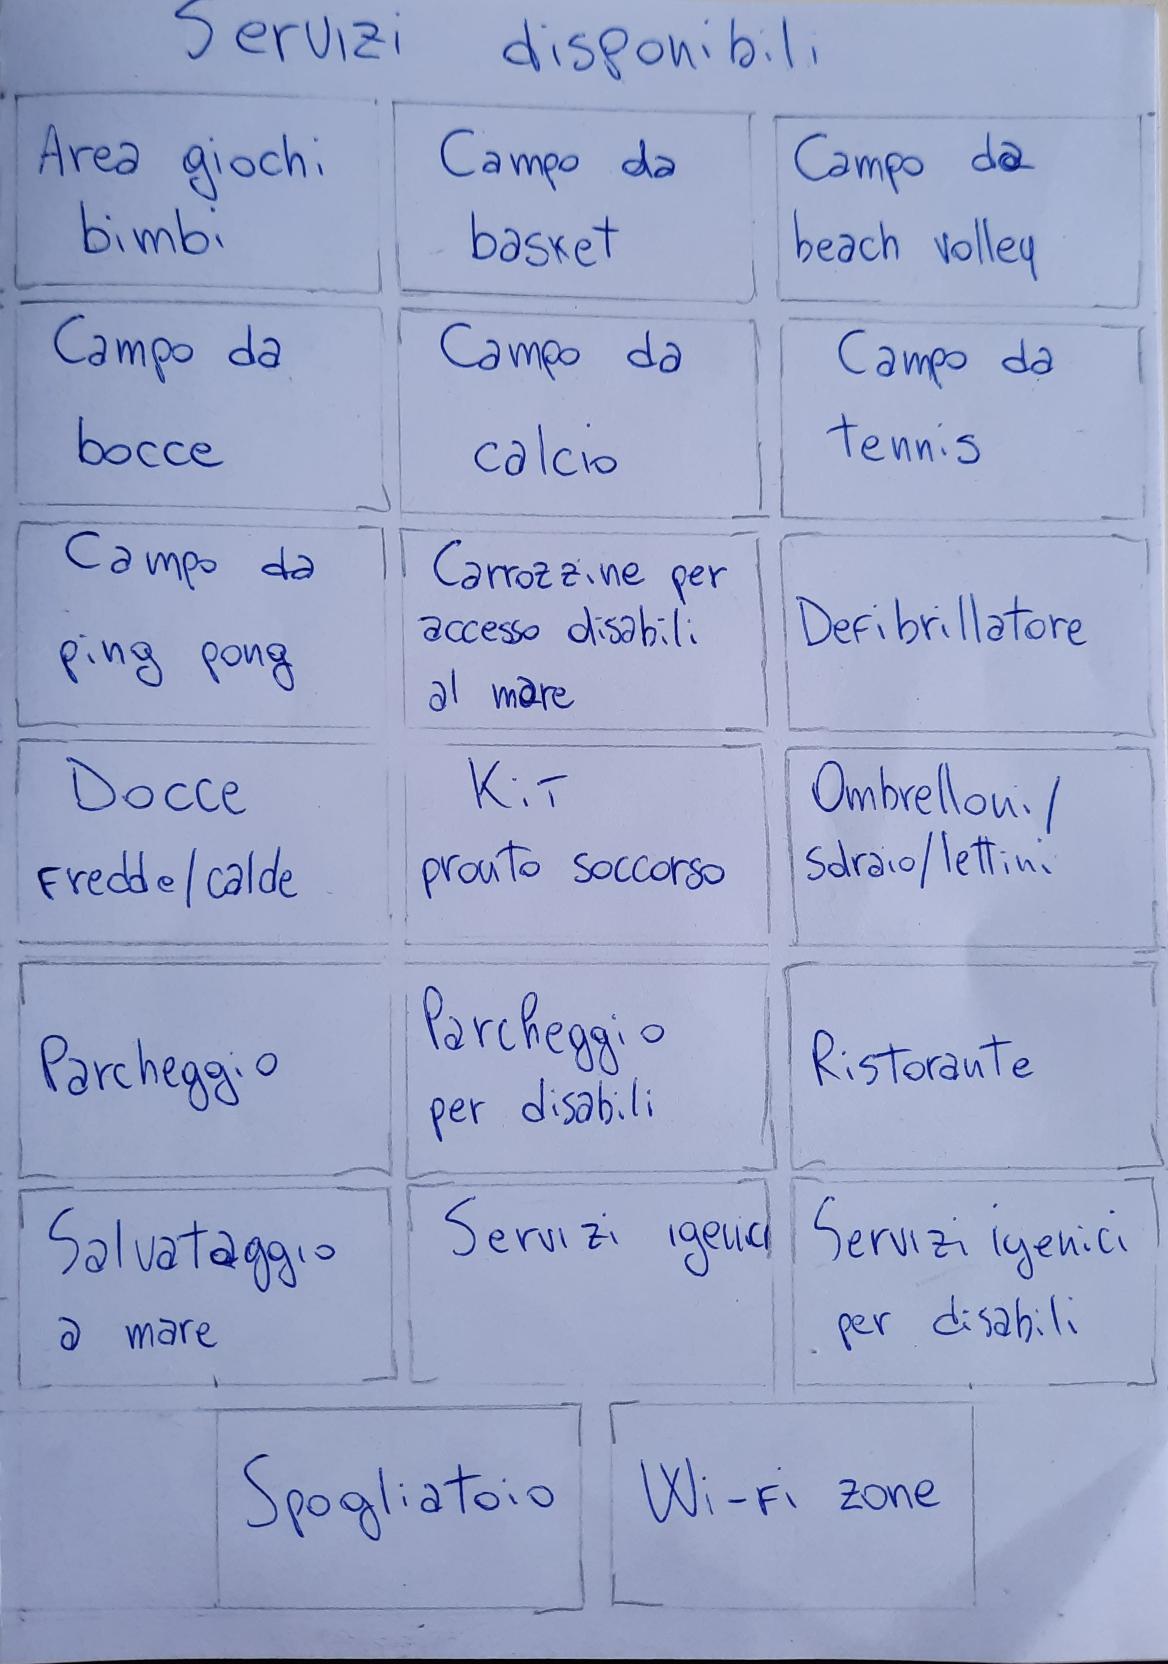 Servizi disponibili
Area giochi
bimbi
Campo da
basket
Campo da
beach volley
Campo da
bocce
Campo da
calcio
Campo da
tennis
Campo da
ping pong
Carrozzine per
accesso disabili
al mare
Defibrillatore
Docce
Fredde/calde
Kit
pronto soccorso
Ombrelloni/
sdraio/lettini
Parcheggio
Parcheggio
per disabili
Ristorante
Salvataggio
a mare
Servizi igenici
Servizi igenici
per disabili
Spogliatoio
Wi-Fi zone